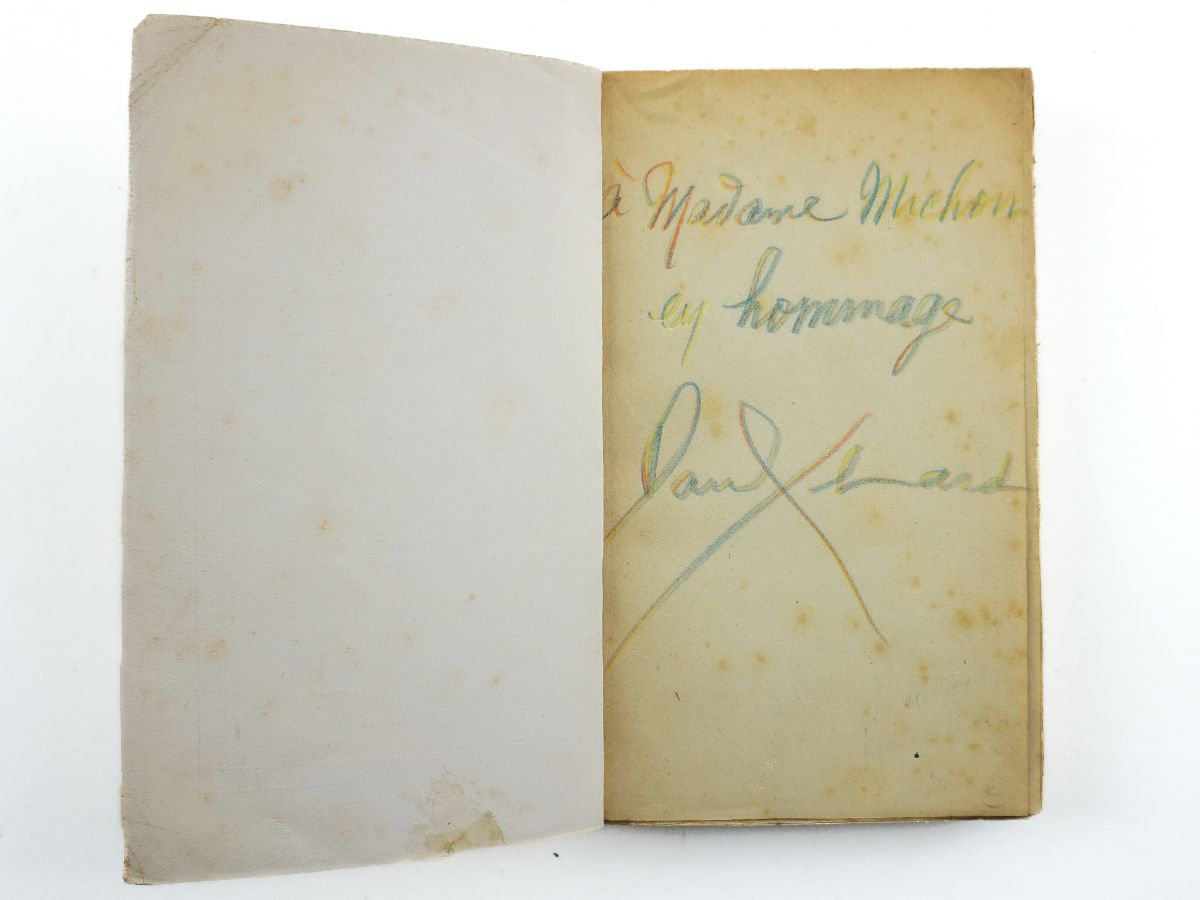 à Madame Michon
en hommage
Paul